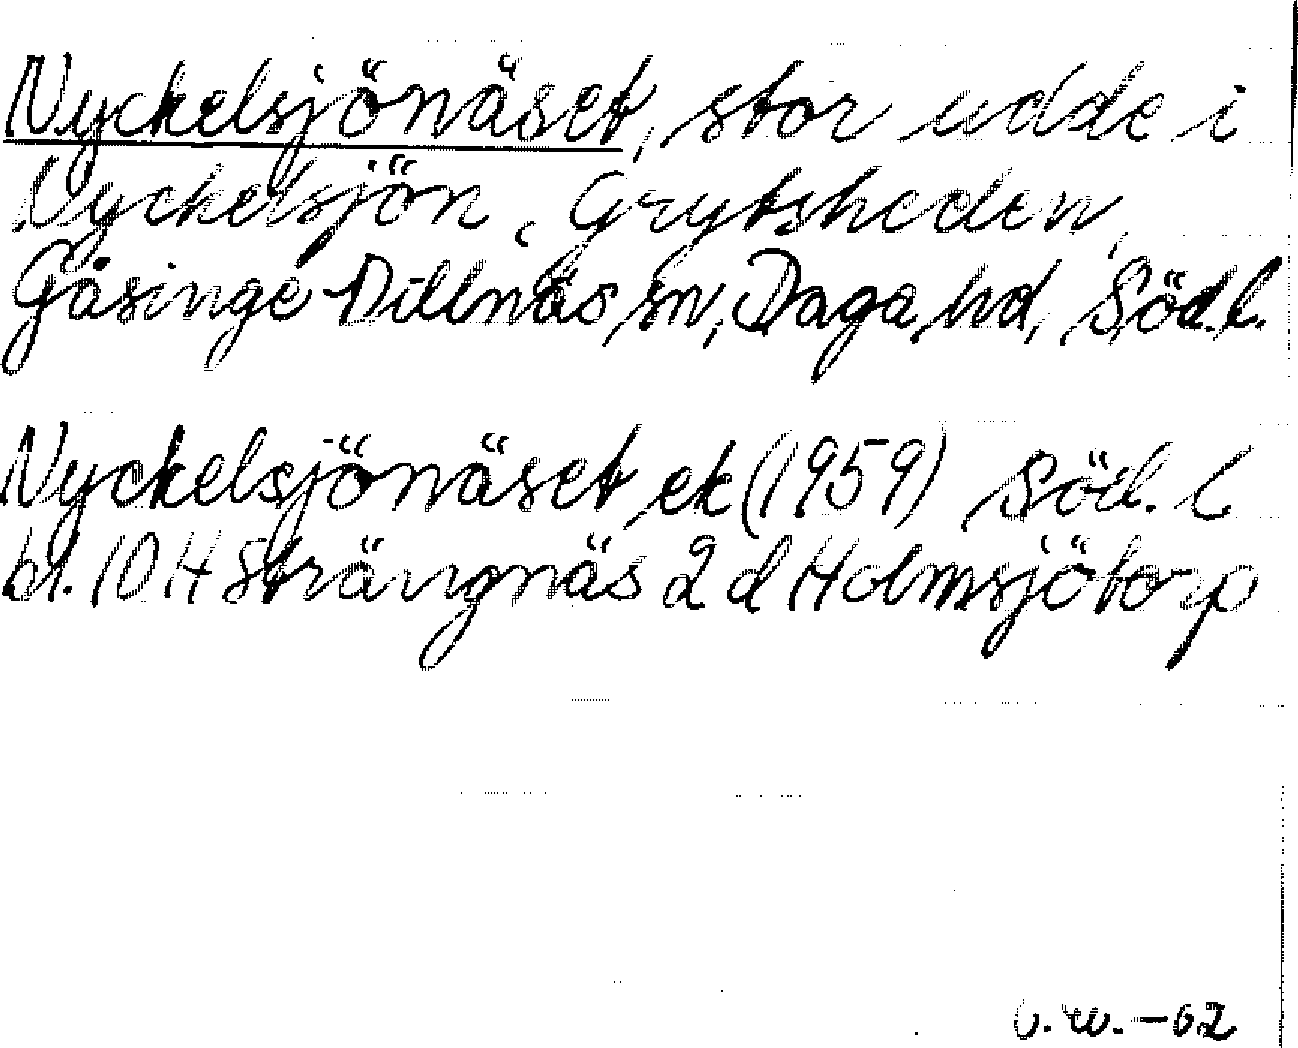 Nyckelsjönäset, stor udde i
Nyckelsjön, Grytsheden,
Gåsinge-Dillnäs sn, Daga hd, Söd.l.
Nyckelsjönäset, ek (1959) Söd. l
bl. 10 H Strängnäs 2 d Holmsjötorp
-62